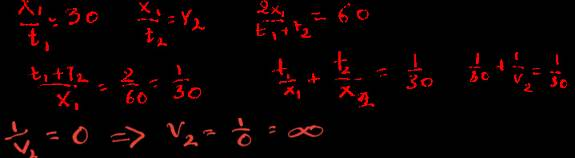 x₁/t₁ = 30 x₁/t₂ = V₂ 2x₁/(t₁+t₂) = 60
(t₁+t₂)/x₁ = 2/60 = 1/30 t₁/x₁ + t₂/x₂ = 1/30 1/30 + 1/V₂ = 1/30
1/V₂ = 0 ⟹ V₂ = 1/0 = ∞